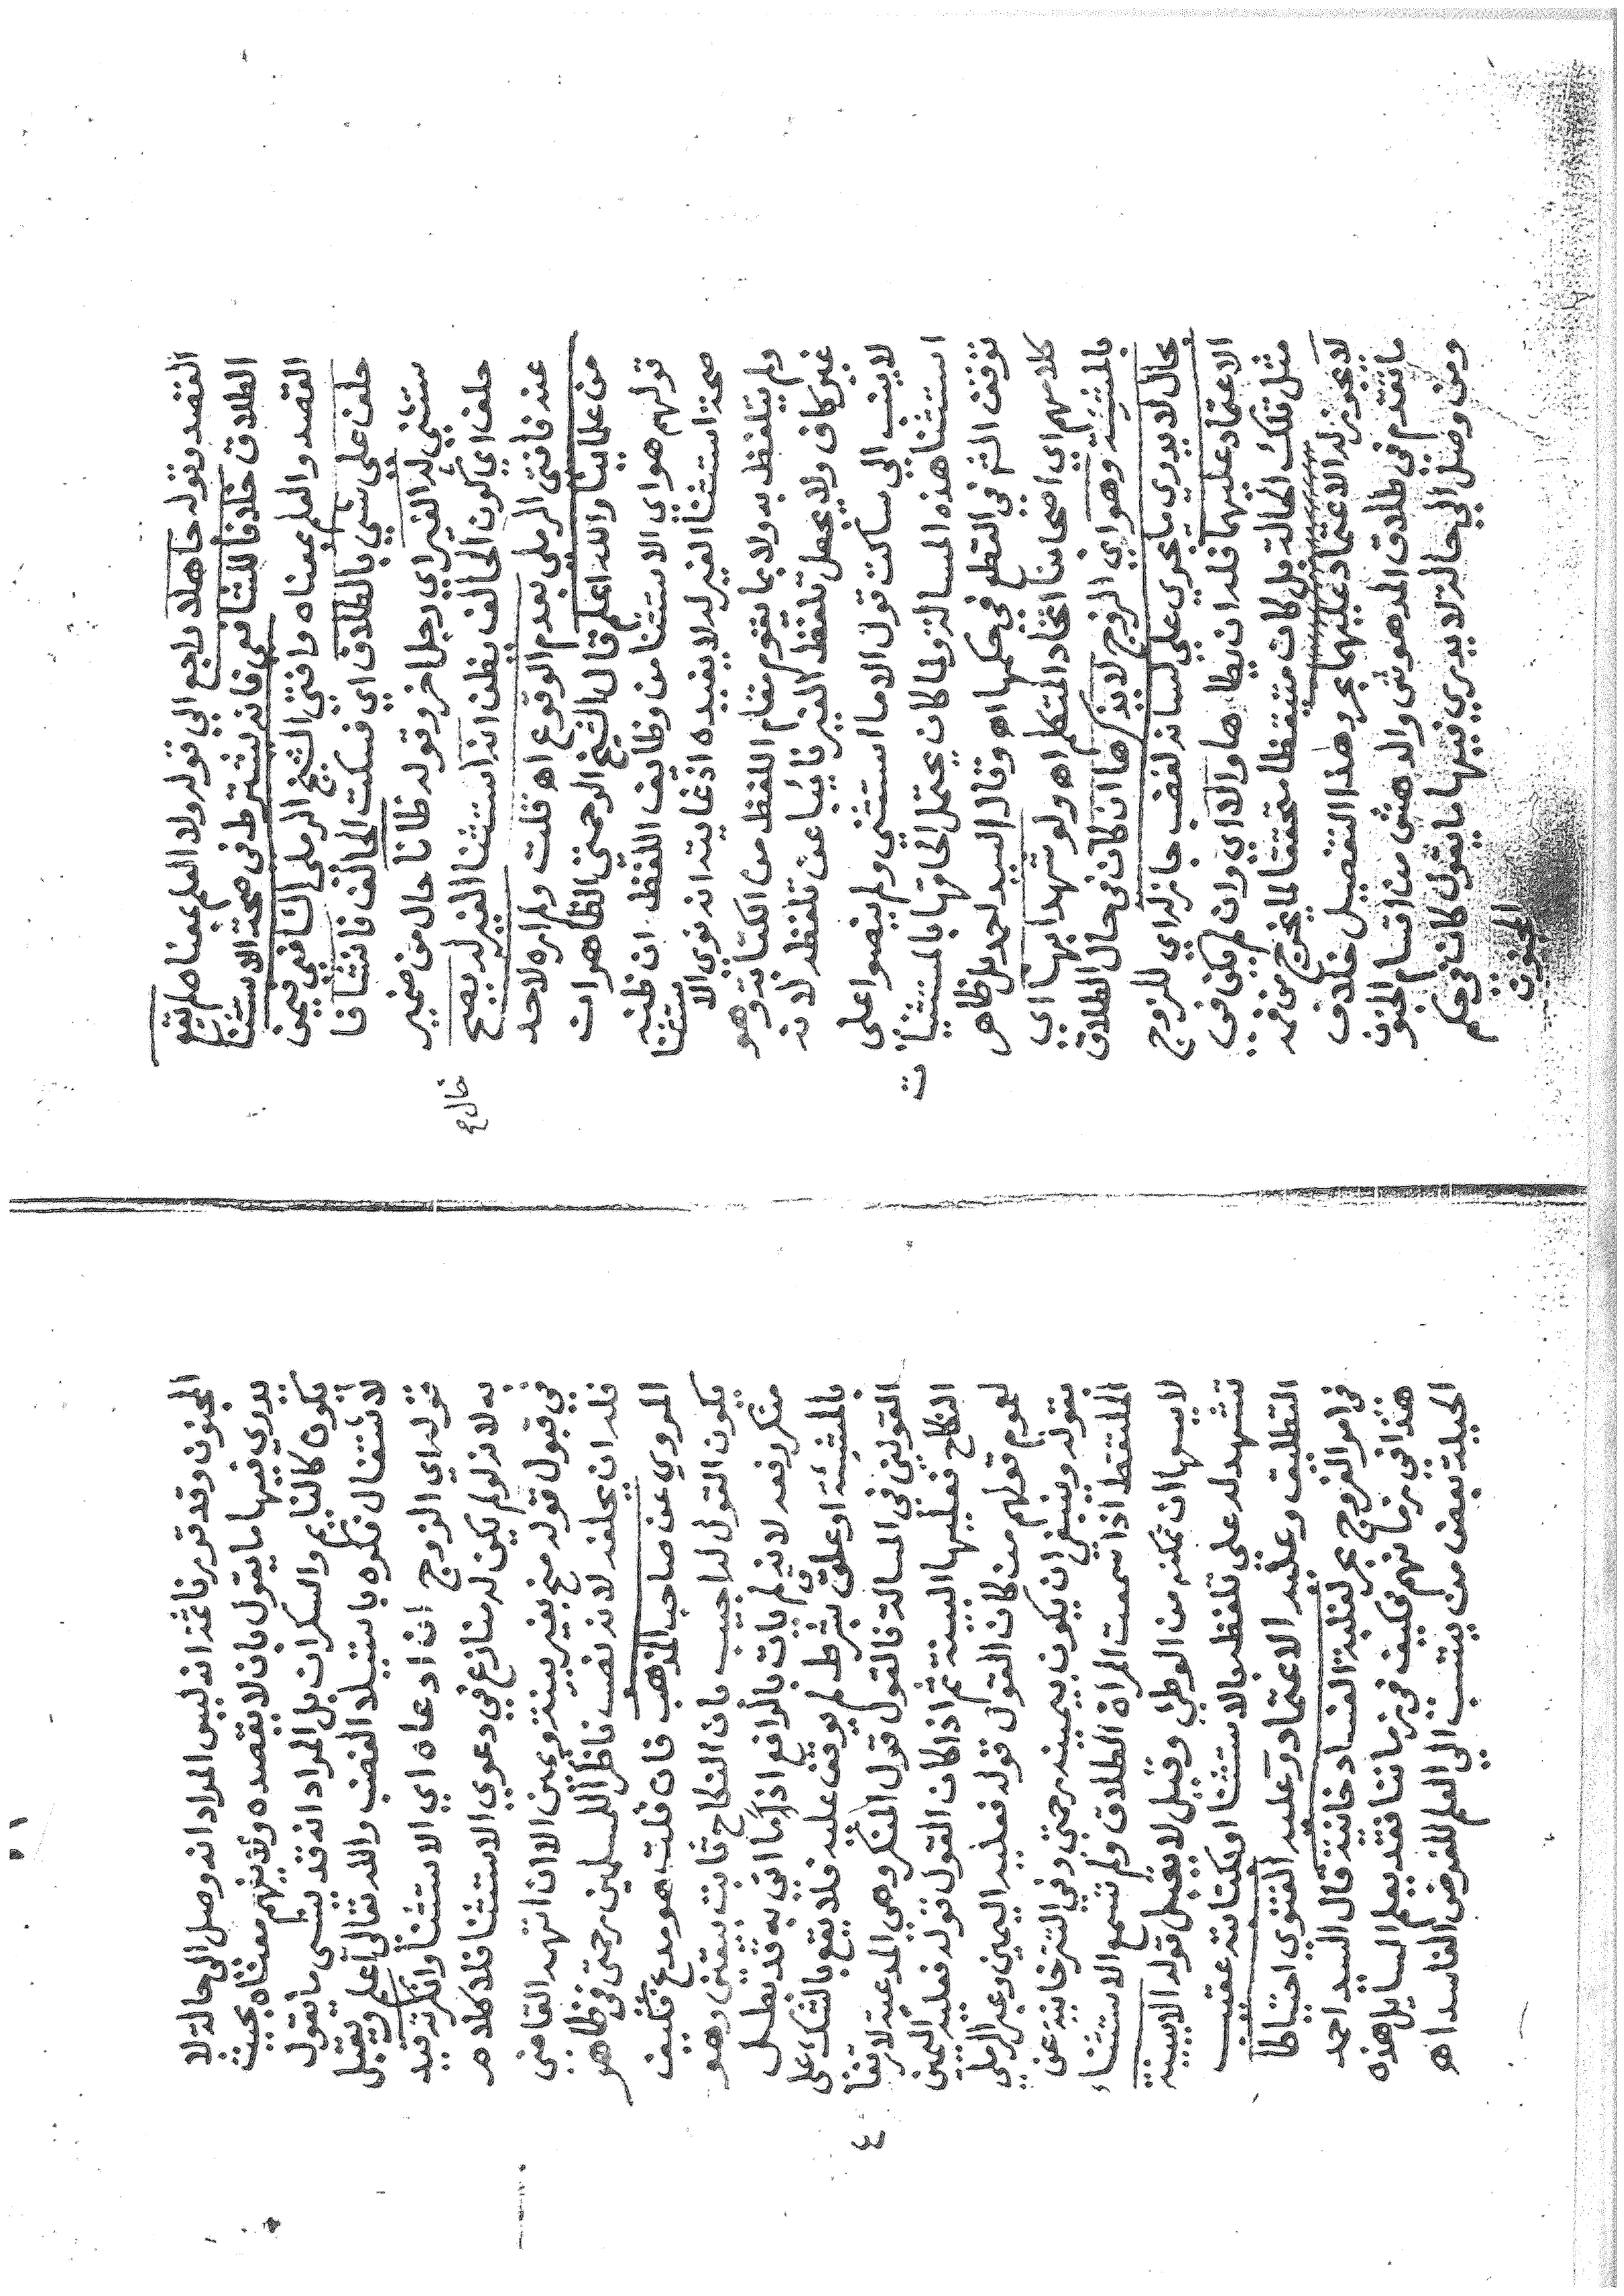 القصد وقوله جاهلا راجع الي قوله ولا العلم بمعناه لم تقو
الطلاق خلافا للشافعي فانه يشترط في صحة الاستثنا
القصد والعلم بمعناه وافتي الشيخ الرملي الشافعي فيمن
حلف علي شي بالطلاق اي فسكت الحالف فانشا فا
ستثني له الغير اي رجل اخر وقوله ظانا حال من ضمير
حلف اي كون الحالف يظن انه استثنا الغير له يصح
عنه فافتي الرملي بعدم الوقوع اه قلت ولم اره لاحد
من علمائنا والله اعلم قال الشيخ الرحمتي الظاهر ان
قولهم هو اي الاستثنا من وظايف اللفظ ان ظنه
صحة استثنا الغير له لا يفيده اذ غايته انه نوي الا
ستثنا
ولم يتلفظ به ولا بما يقوم مقام اللفظ من الكتابة وهو
غير كاف ولا يجعل تلفظ الغير نايبا عن تلفظه لانه
لا ينسب الي ساكت قول الا ما استثني ولم ينصوا علي
استثنا هذه المسالة ولما كان يحتمل الحاقها بالمستثنيات
توقف الشيخ في القطع في حكمها اه وقال السيد احمد بل ظاهر
كلامهم اي اصحابنا اتحاد المتكلم اه ولو شهدا بها اي
بالمشيئة وهو اي الزوج لا يذكرها ان كان في حال الطلاق
بحال لا يدري ما يجري علي لسانه لغضب جاز له اي للزوج
الاعتماد عليهما فله ان يطاها والا اي وان لم يكن في
مثل تلك الحالة بل كان متيقظا متحققا لما يخرج من فمه
لا يجوز له الاعتماد عليهما بحر وهذا التفصيل خلاف
ما تقدم في طلاق المدهوش والدهش من اقسام الجنون
ومن وصل الي حالة لا يدري فيها ما يقول كان في حكم
المجنون
المجنون وقد قررنا ثمة انه ليس المراد انه وصل الي حالة لا
يدري فيها ما يقول بان لا يقصده ولا يفهم معناه بحيث
يكون كالنايم والسكران بل المراد انه قد ينسي ما يقول
لاشتغال فكره باستيلا الغضب والله تعالي اعلم ويقبل
قوله اي الزوج ان ادعاه اي الاستثنا وانكرته قيد
به لانه لو لم يكن له منازع في دعوي الاستثنا فلا كلام
في قبول قوله منح بغير بينة ويمين الا ان اتهمه القاضي
فله ان يحلفه لانه نصب ناظرا للمسلمين رحمتي في ظاهر
المروي عن صاحب المذهب فان قلت هو مدع فكيف
يكون القول له اجيب بان النكاح ثابت بيقين وهو
منكر رفعه لانه لم يات بالرافع اذ ما اتي به قد بطل
بالمشيئة او علق بشرط لم يوقف عليه فلا يقع بالشك علي
القولين في المسالة فالقول قول المنكر وهي المدعية لارتفا
النكاح فعليها البينة ثم اذا كان القول قوله فعليه اليمين
لعموم قولهم من كان القول قوله فعليه اليمين وعبر الرملي
بقوله وينبغي ان يكون بيمينه رحمتي وفي التترخانية عن
الملتقط اذا سمعت المراة الطلاق ولم تسمع الاستثناء
لا يسعها ان تمكنه من الوطئ وقيل لا يقبل قوله الا ببينة
تشهد له علي تلفظه بالاستثنا او بكتابته عقيب
التعليق وعليه الاعتماد وعليه الفتوي احتياطا
في امر الفروج بحر لغلبة الفساد خانية قال السيد احمد
هذا في زمانهم فكيف في زماننا فقد يعلم السايل هذه
الحيلة بعض من ينتسب الي العلم للغرض الفاسد اه